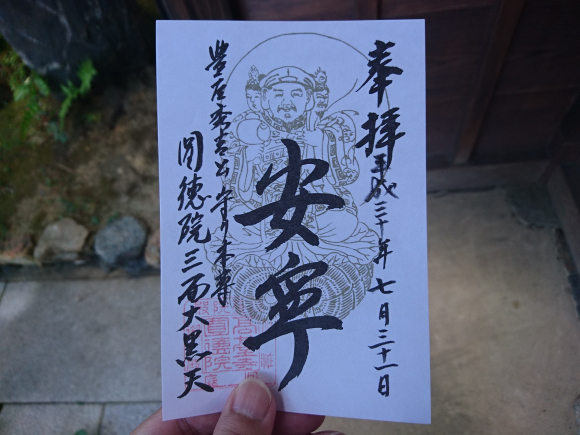 奉拝
平成三十年七月三十一日
安寧
豊臣秀吉公守り本尊
圓徳院三面大黒天